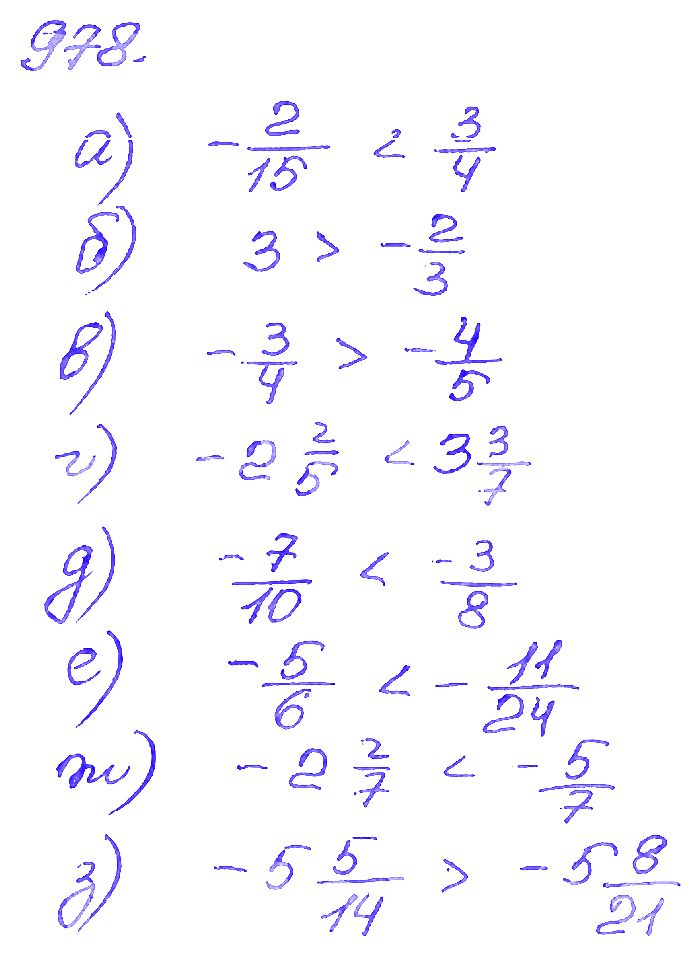 978.
а) -2/15 < 3/4
б) 3 > -2/3
в) -3/4 > -4/5
г) -2 2/5 < 3 3/7
д) -7/10 < -3/8
е) -5/6 < -11/24
ж) -2 2/7 < -5/7
з) -5 5/14 > -5 8/21